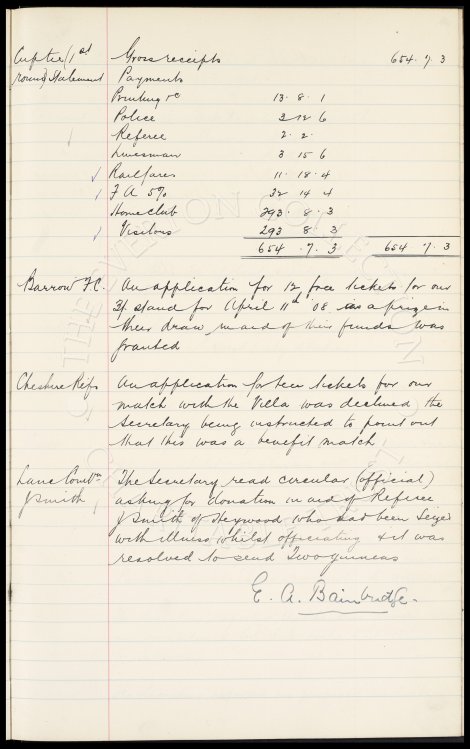 Cup tie (1st Gross receipts 654. 7. 3
round) Statement Payments
Printing &c 13. 8. 1
Police 2 12 6
Referee 2. 2.
Linesman 3 15 6
Railfares 11. 18. 4
F A 5% 32 14 4
Home club 293. 8. 3
Visitors 293 8. 3
654. 7. 3 654 7. 3
Barrow F.C. An application for 12 free tickets for our
stand for April 11th 08 as a prize in
their draw in aid of their funds was
granted
Cheshire Refs An application for teen tickets for our
match with the Villa was declined the
Secretary being instructed to point out
that this was a benefit match.
Lanc The Secretary read circular (official)
J Smith asking for donation in aid of Referee
J Smith of Heywood who had been seized
with illness whilst officiating & it was
resolved to send Two guineas
E. A. Bainbridge.